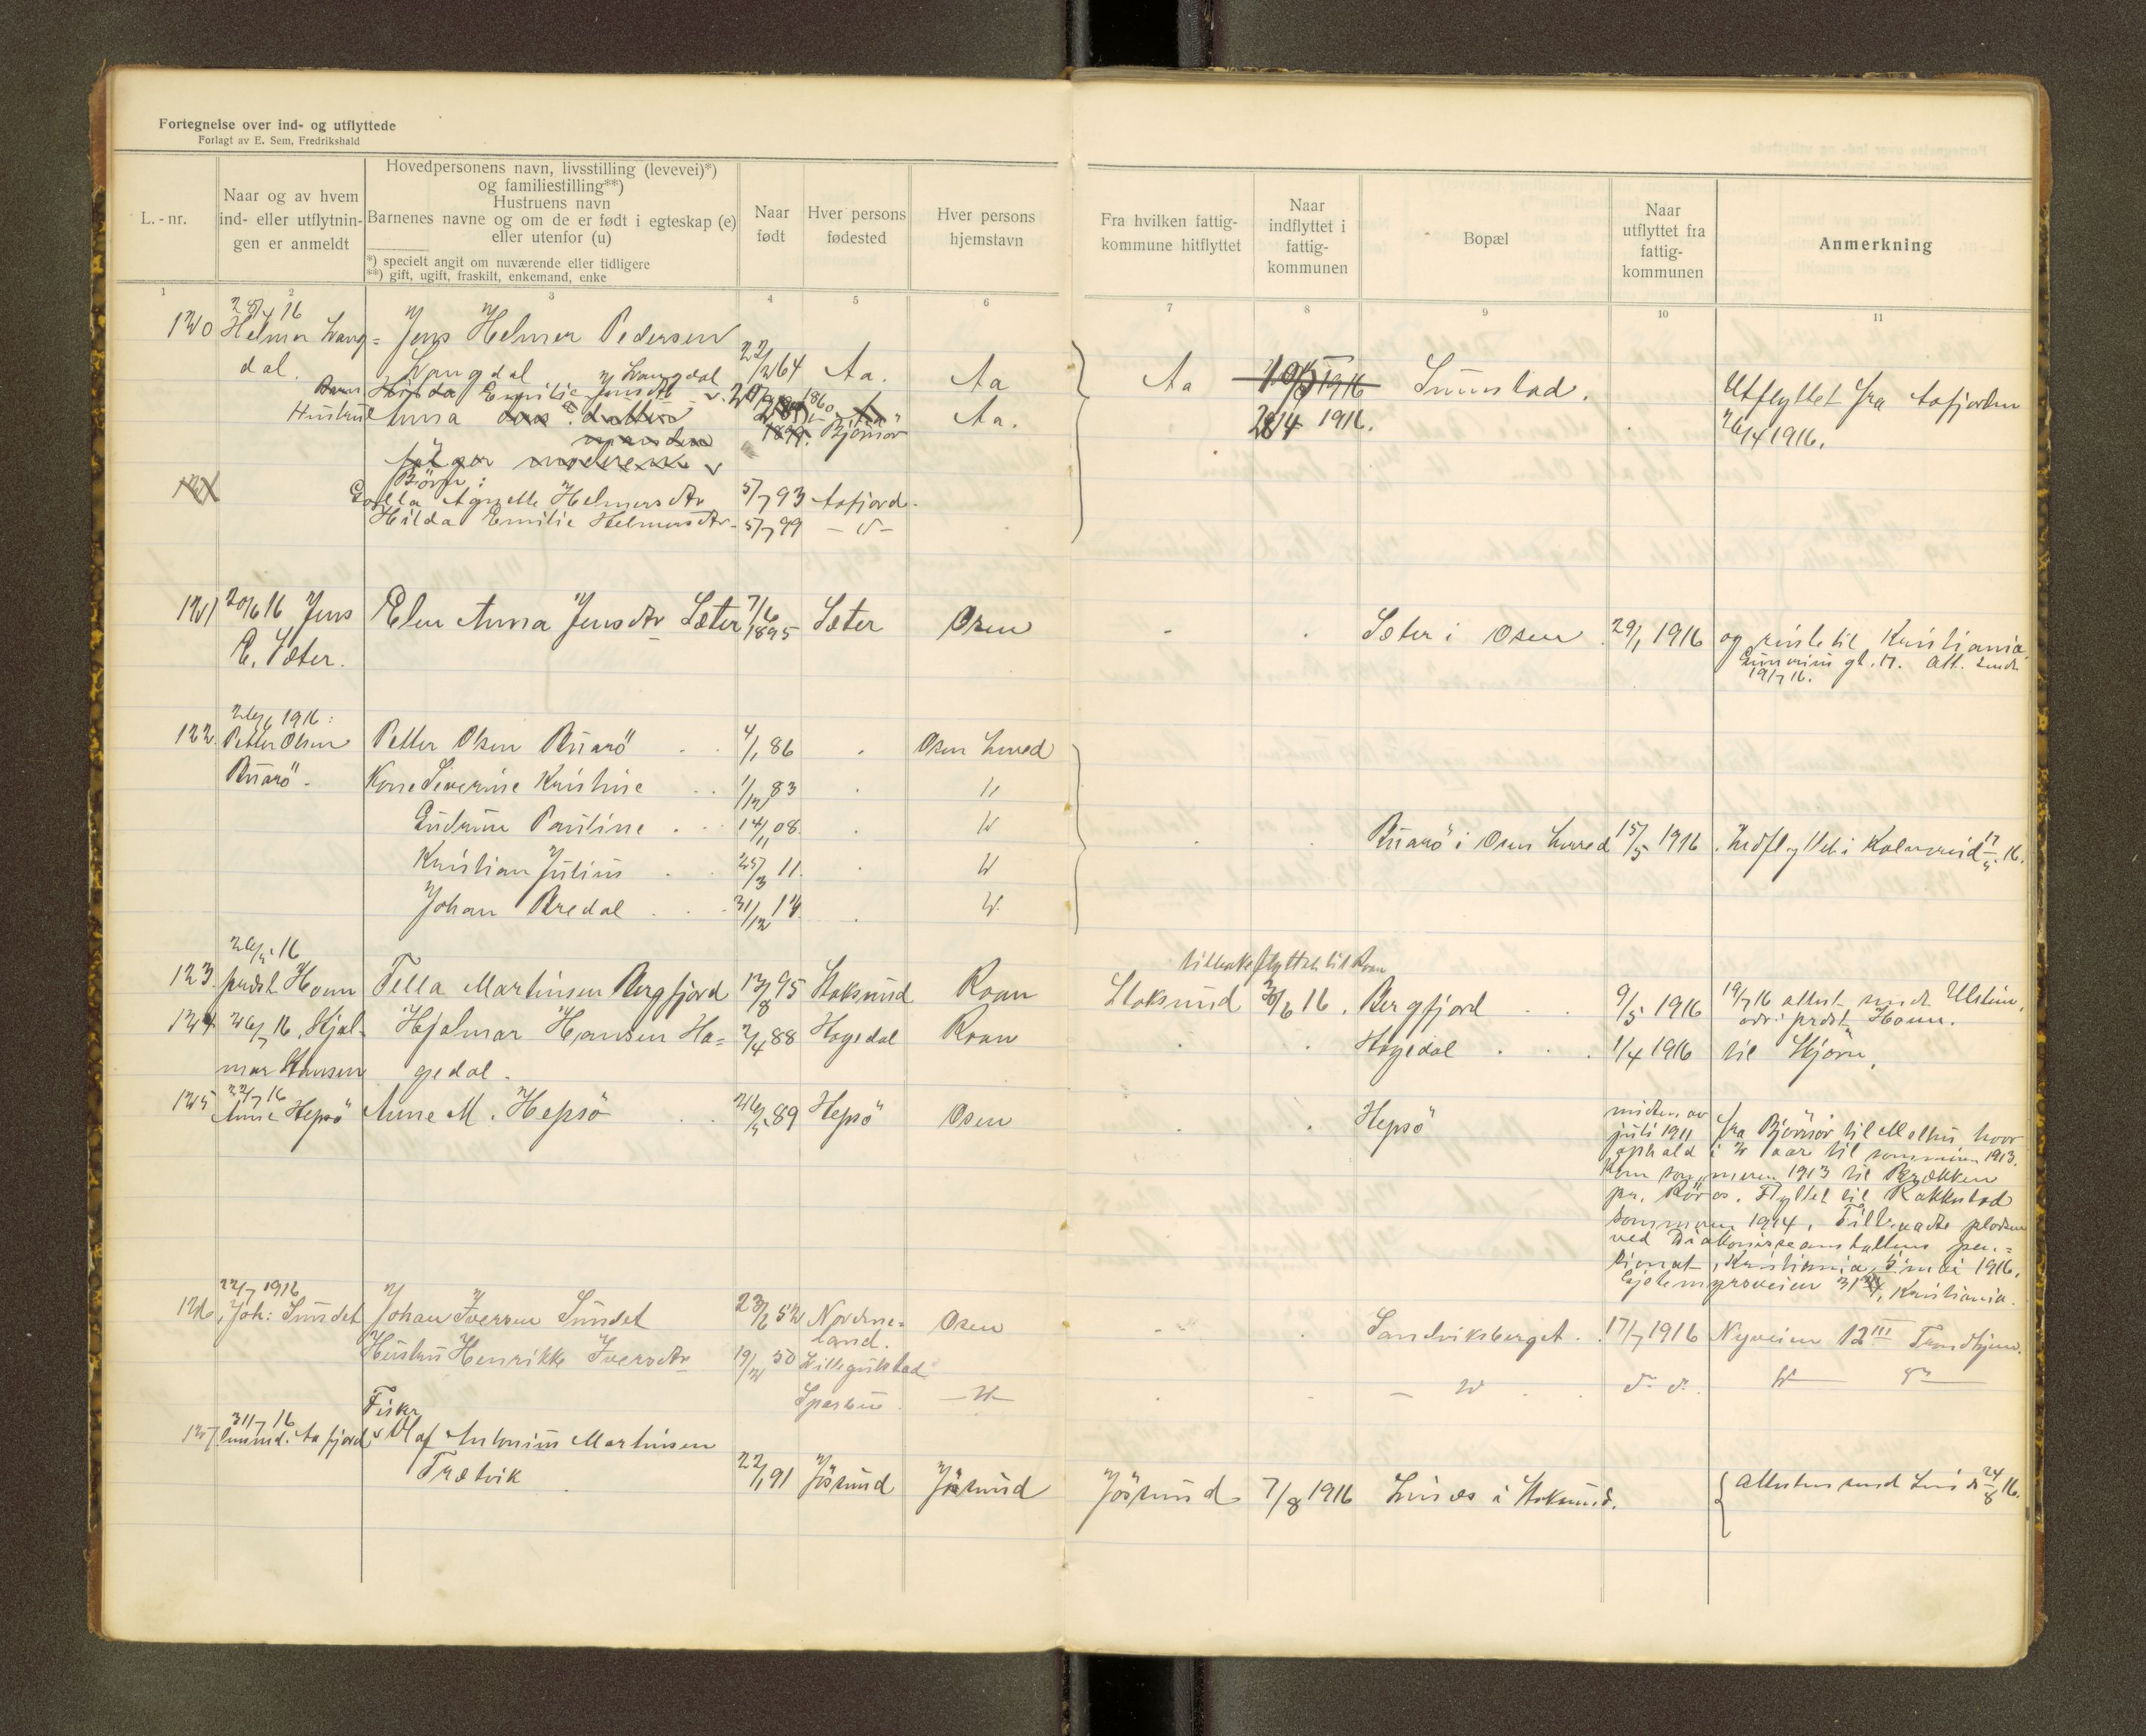 Fortegnelse over ind- og utflyttede
Forlagt av E. Sem, Fredrikshald
L.-nr.
Naar og av hvem
ind- eller utflytnin-
gen er anmeldt
Hovedpersonens navn, livsstilling (levevei)*)
og familiestilling**)
Hustruens navn
Barnenes navne og om de er født i egteskap (e)
eller utenfor (u)
*) specielt angit om nuværende eller tidligere
**) gift, ugift, fraskilt, enkemand, enke
Naar
født
Hver persons
fødested
Hver persons
hjemstavn
Fra hvilken fattig-
kommune hitflyttet
Naar
indflyttet i
fattig-
kommunen
Bopæl
Naar
utflyttet fra
fattig-
kommunen
Anmerkning
1 2 3 4 5 6 7 8 9 10 11
28/4 16
120 Helmer Lang- Jens Helmer Pedersen
dal. Langdal 22/2 64 Aa. Aa Aa 1916 Sumstad. Utflyttet fra Aafjorden
Hilda Emilie Jensdtr
Hustru Anna 1860 Bjørnør Aa. 28/4 1916. 26/4 1916.
følger moderen
Børn:
Agnette Helmersdtr 5/7 93 Aafjord.
Hilda Emilie Helmersdtr. 5/7 99 - d -
121 20/6 16 Jens Elen Anna Jensdtr Sæter 7/6 1895 Sæter Osen - . Sæter i Osen 29/1 1916 og reiste til Kristiania
E. Sæter. 19/7 16.
26/6 1916:
122. Petter Olsen Petter Olsen Buarö 4/1 86 . Osen herred
Buarö. Kone Severine Kristine 1/12 83 . "
Gudrun Pauline 14/11 08. . "
Buarö i Osen herred 15/5 1916. Indflyttet i Kolvereid 17/5 16.
Kristian Julius 25/3 11. . "
Johan Bredal 31/12 14. . "
26/5 16 tilbakeflyttet til Roan
123. prest Hoem Tella Martinsen Bergfjord 13/8 95 Stoksund Roan Stoksund 30/6 16. Bergfjord 9/5 1916 19/7 16 attest sendt Ulstein,
adr. prest Hoem.
124 26/7 16. Hjal- Hjalmar Hansen Ha- 2/4 88 Hagedal Roan . . Hagedal 1/4 1916 til Stjørn.
mar Hansen gedal.
22/7 16
125 Anne Hepsö Anne M. Hepsö 26/5 89 Hepsö Osen . . Hepsö midten av
juli 1911 fra Bjørnør til Melhus hvor
ophold i 2 aar til sommeren 1913.
Kom sommeren 1913 til Brækken
pr. Röros. Flyttet til Rakkestad
sommeren 1914. Tiltraadte plassen
ved Diakonisseanstaltens pen-
sionat, Kristiania, 5 mai 1916.
Gjetemyrsveien 31, Kristiania.
22/7 1916
126, Joh: Sundet Johan Iversen Sundet 23/6 52 Nordme- Osen - . Sandviksberget. 17/7 1916 Nyveien 12 III Trondhjem.
land.
Hustru Henrikke Iversdtr 19/2 50
Sparbu
Fisker
31/7 16
127 lensmd. i Aafjord Olaf Antonius Martinsen
Trætvik 22/1 91 Jösund Jösund Jösund 7/8 1916 Linæs i Stoksund. Attesten sendt 24/8 16.